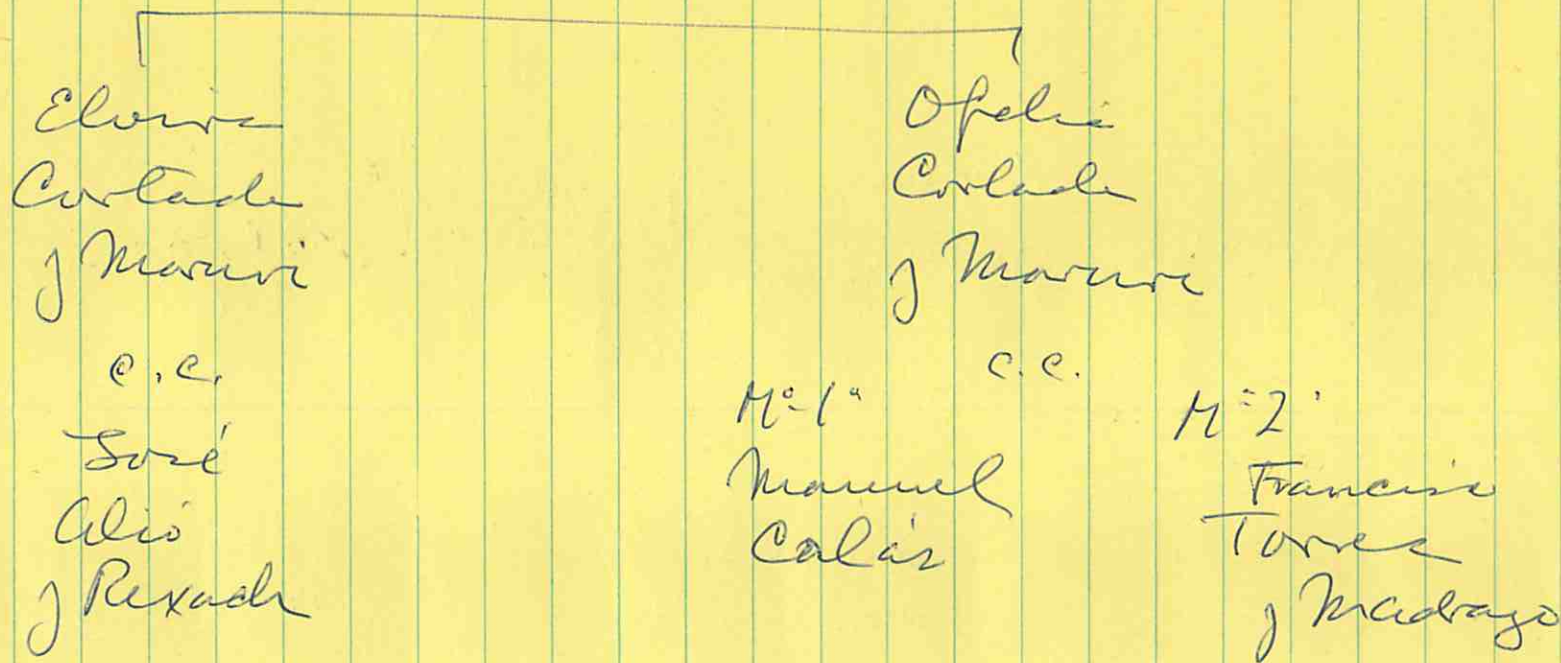 Elvira
Cortada
y Maruri
c.c.
José
Alió
y Rexach
Ofelia
Cortada
y Maruri
c.c.
Mº-1º
Manuel
Calás
Mº 2º
Francisco
Torres
y Madrazo